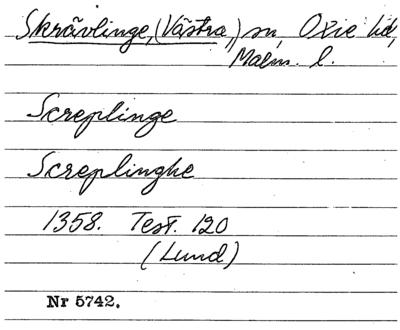 Skrävlinge, (Västra,) sn, Oxie hd,
Malm. l.
Screplinge
Screplinghe
1358. Test. 120
(Lund)
Nr 5742.